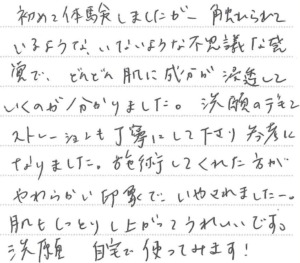 初めて体験しましたが、触られて
いるような、いないような不思議な感
覚で、どんどん肌に成分が浸透して
いくのが分かりました。洗顔のデモン
ストレーションも丁寧にして下さり参考に
なりました。施術してくれた方が
やわらかい印象で、いやされましたー。
肌もしっとり上がってうれしいです。
洗顔 自宅で使ってみます！